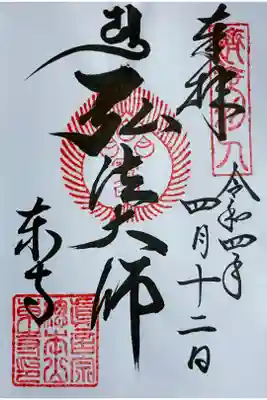 奉拝
令和四年
四月十二日
弘法大師
東寺